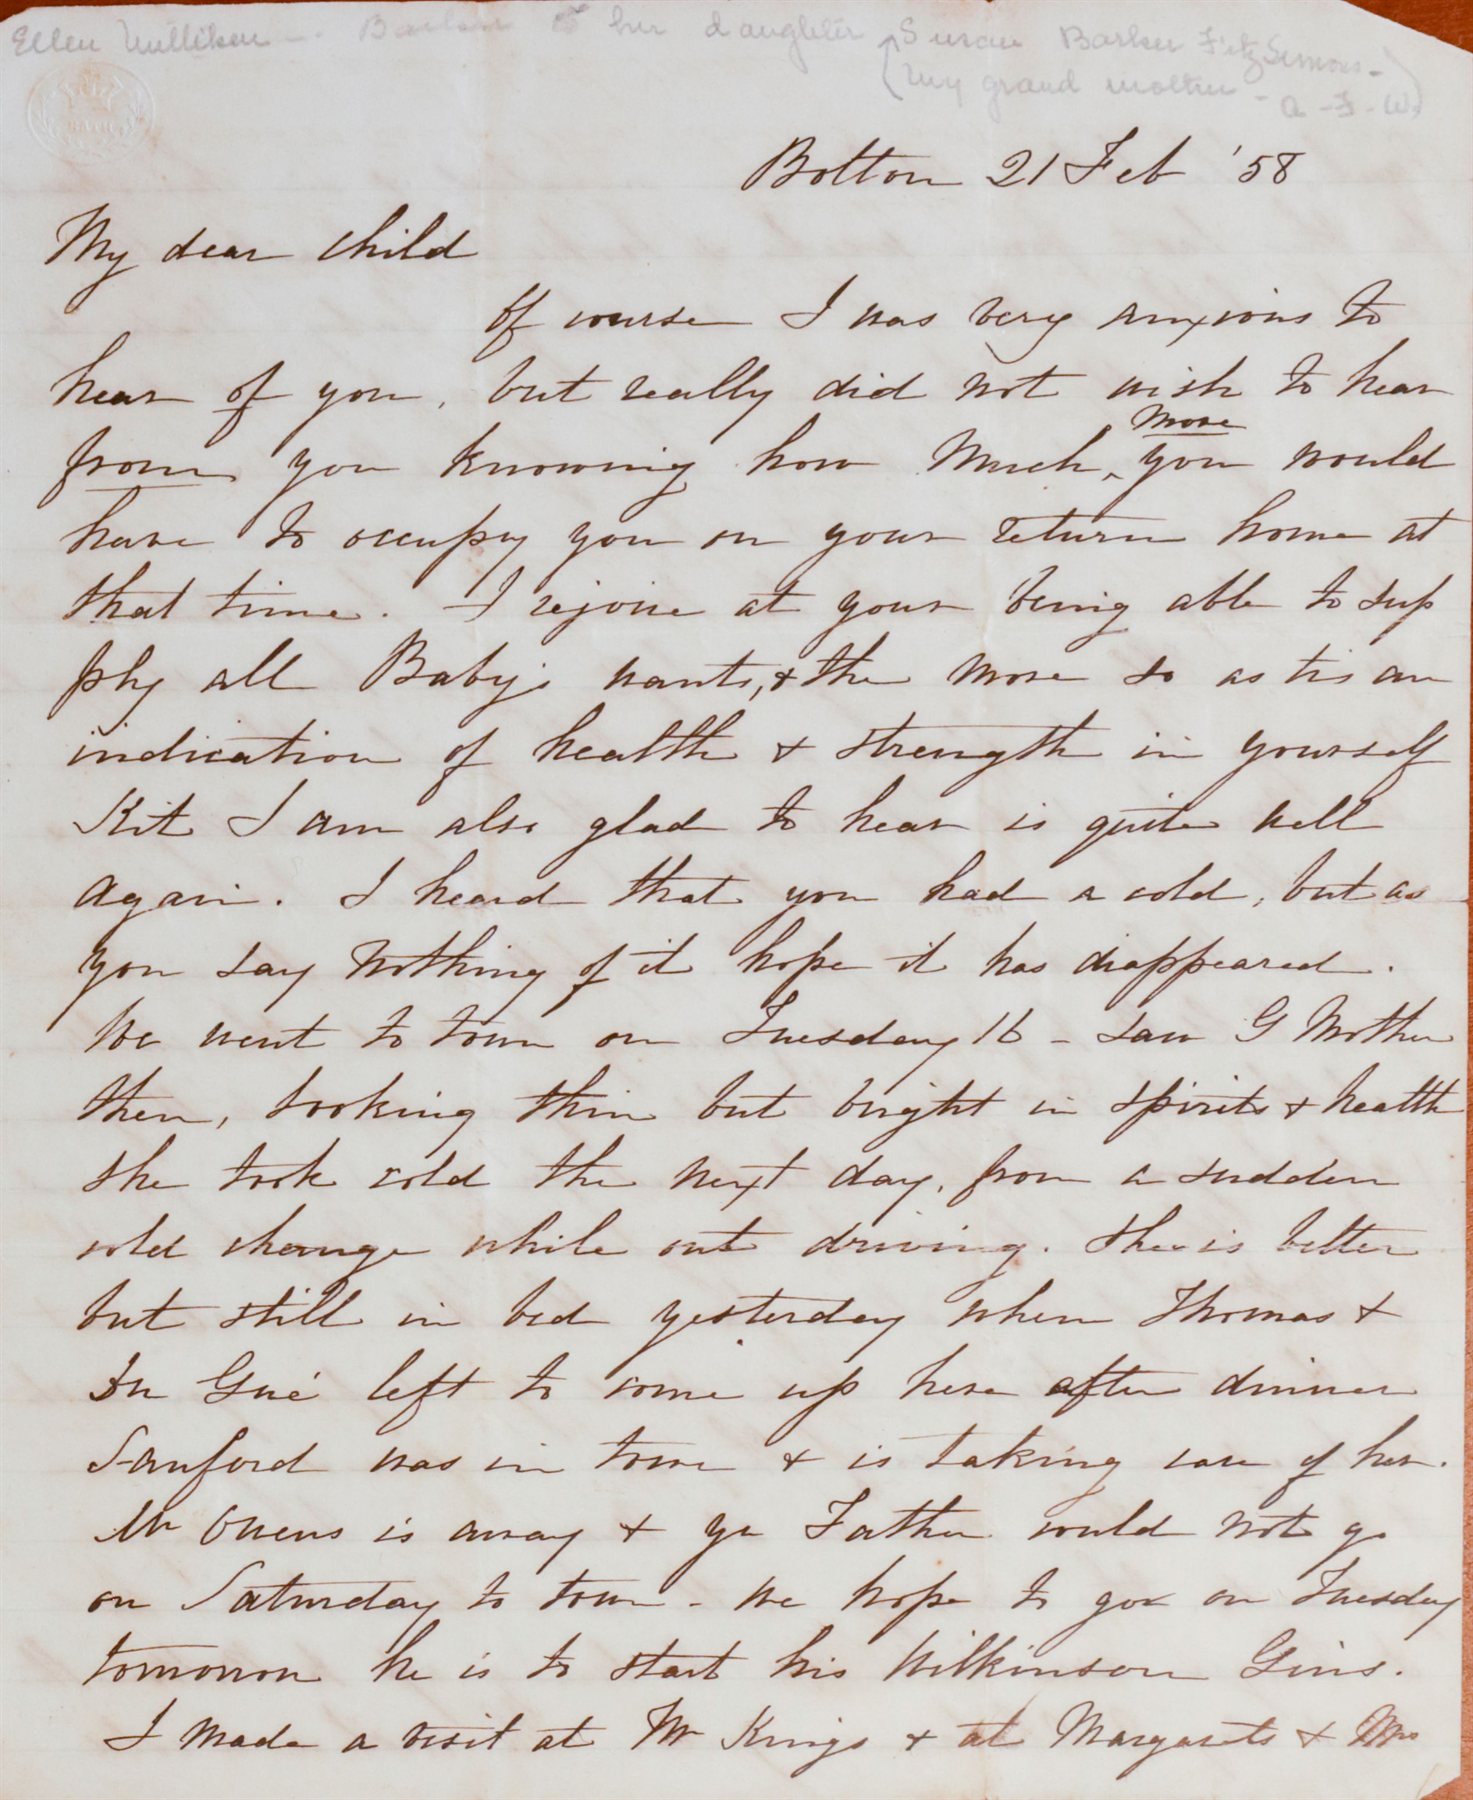 Ellen Milliken - Barker to her daughter Susan Barker FitzSimons -
(my grand mother - A-F-W.)
BATH
Botton 21 Feb '58
My dear child
Of course I was very anxious to
hear of you, but really did not wish to hear
from you knowing how much ^ more you would
have to occupy you on your return home at
that time. I rejoice at your being able to sup
ply all Baby's wants, & the more so as tis an
indication of health & strength in yourself
Kit I am also glad to hear is quite well
again. I heard that you had a cold, but as
you say nothing of it hope it has disappeared.
We went to town on Tuesday 16 - saw G Mother
then, looking thin but bright in spirits & health
she took cold the next day, from a sudden
cold change while out driving. She is better
but still in bed yesterday when Thomas &
Dr Gué left to come up here after dinner
Sanford was in town & is taking care of her.
Mr Owens is away & yr Father could not go
on Saturday to town - we hope to go on Tuesday
tomorrow he is to start his Wilkinson Gins.
I made a visit at Mr Kings & at Margarets & Mrs